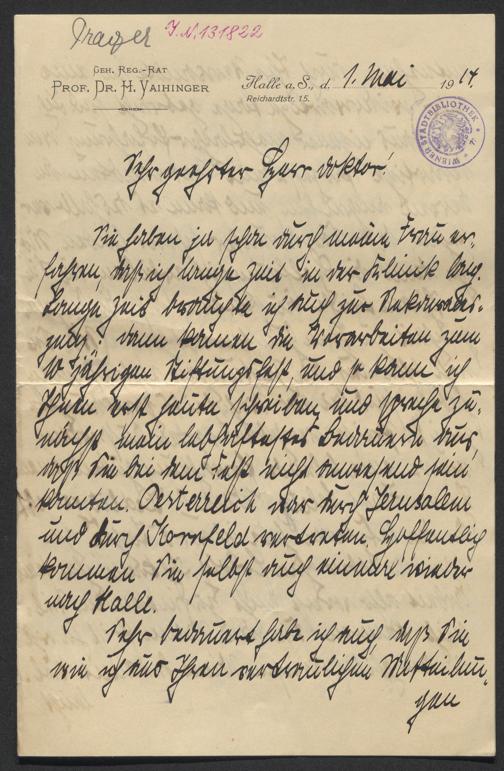 Prager J.N. 131822
GEH. REG.-RAT
PROF. DR. H. VAIHINGER
Halle a. S., d. 1. Mai 1914
Reichardtstr. 15.
WIENER STADTBIBLIOTHEK
Sehr geehrter Herr Doktor!
Sie haben ja schon durch meine Frau er-
fahren, daß ich lange Zeit in der Klinik lag.
Lange Zeit brauchte ich auch zur
dann kamen die Vorarbeiten zum
10 jährigen Stiftungsfest, und so kann ich
Ihnen erst heute schreiben und spreche zu-
nächst mein lebhaftestes Bedauern aus,
daß Sie bei dem Fest nicht anwesend sein
konnten. Oesterreich war durch Jerusalem
und durch Kornfeld vertreten. Hoffentlich
kommen Sie selbst auch einmal wieder
nach Halle.
Sehr bedauert habe ich auch, daß Sie
wie ich aus Ihren vertraulichen Mitteilun-
gen